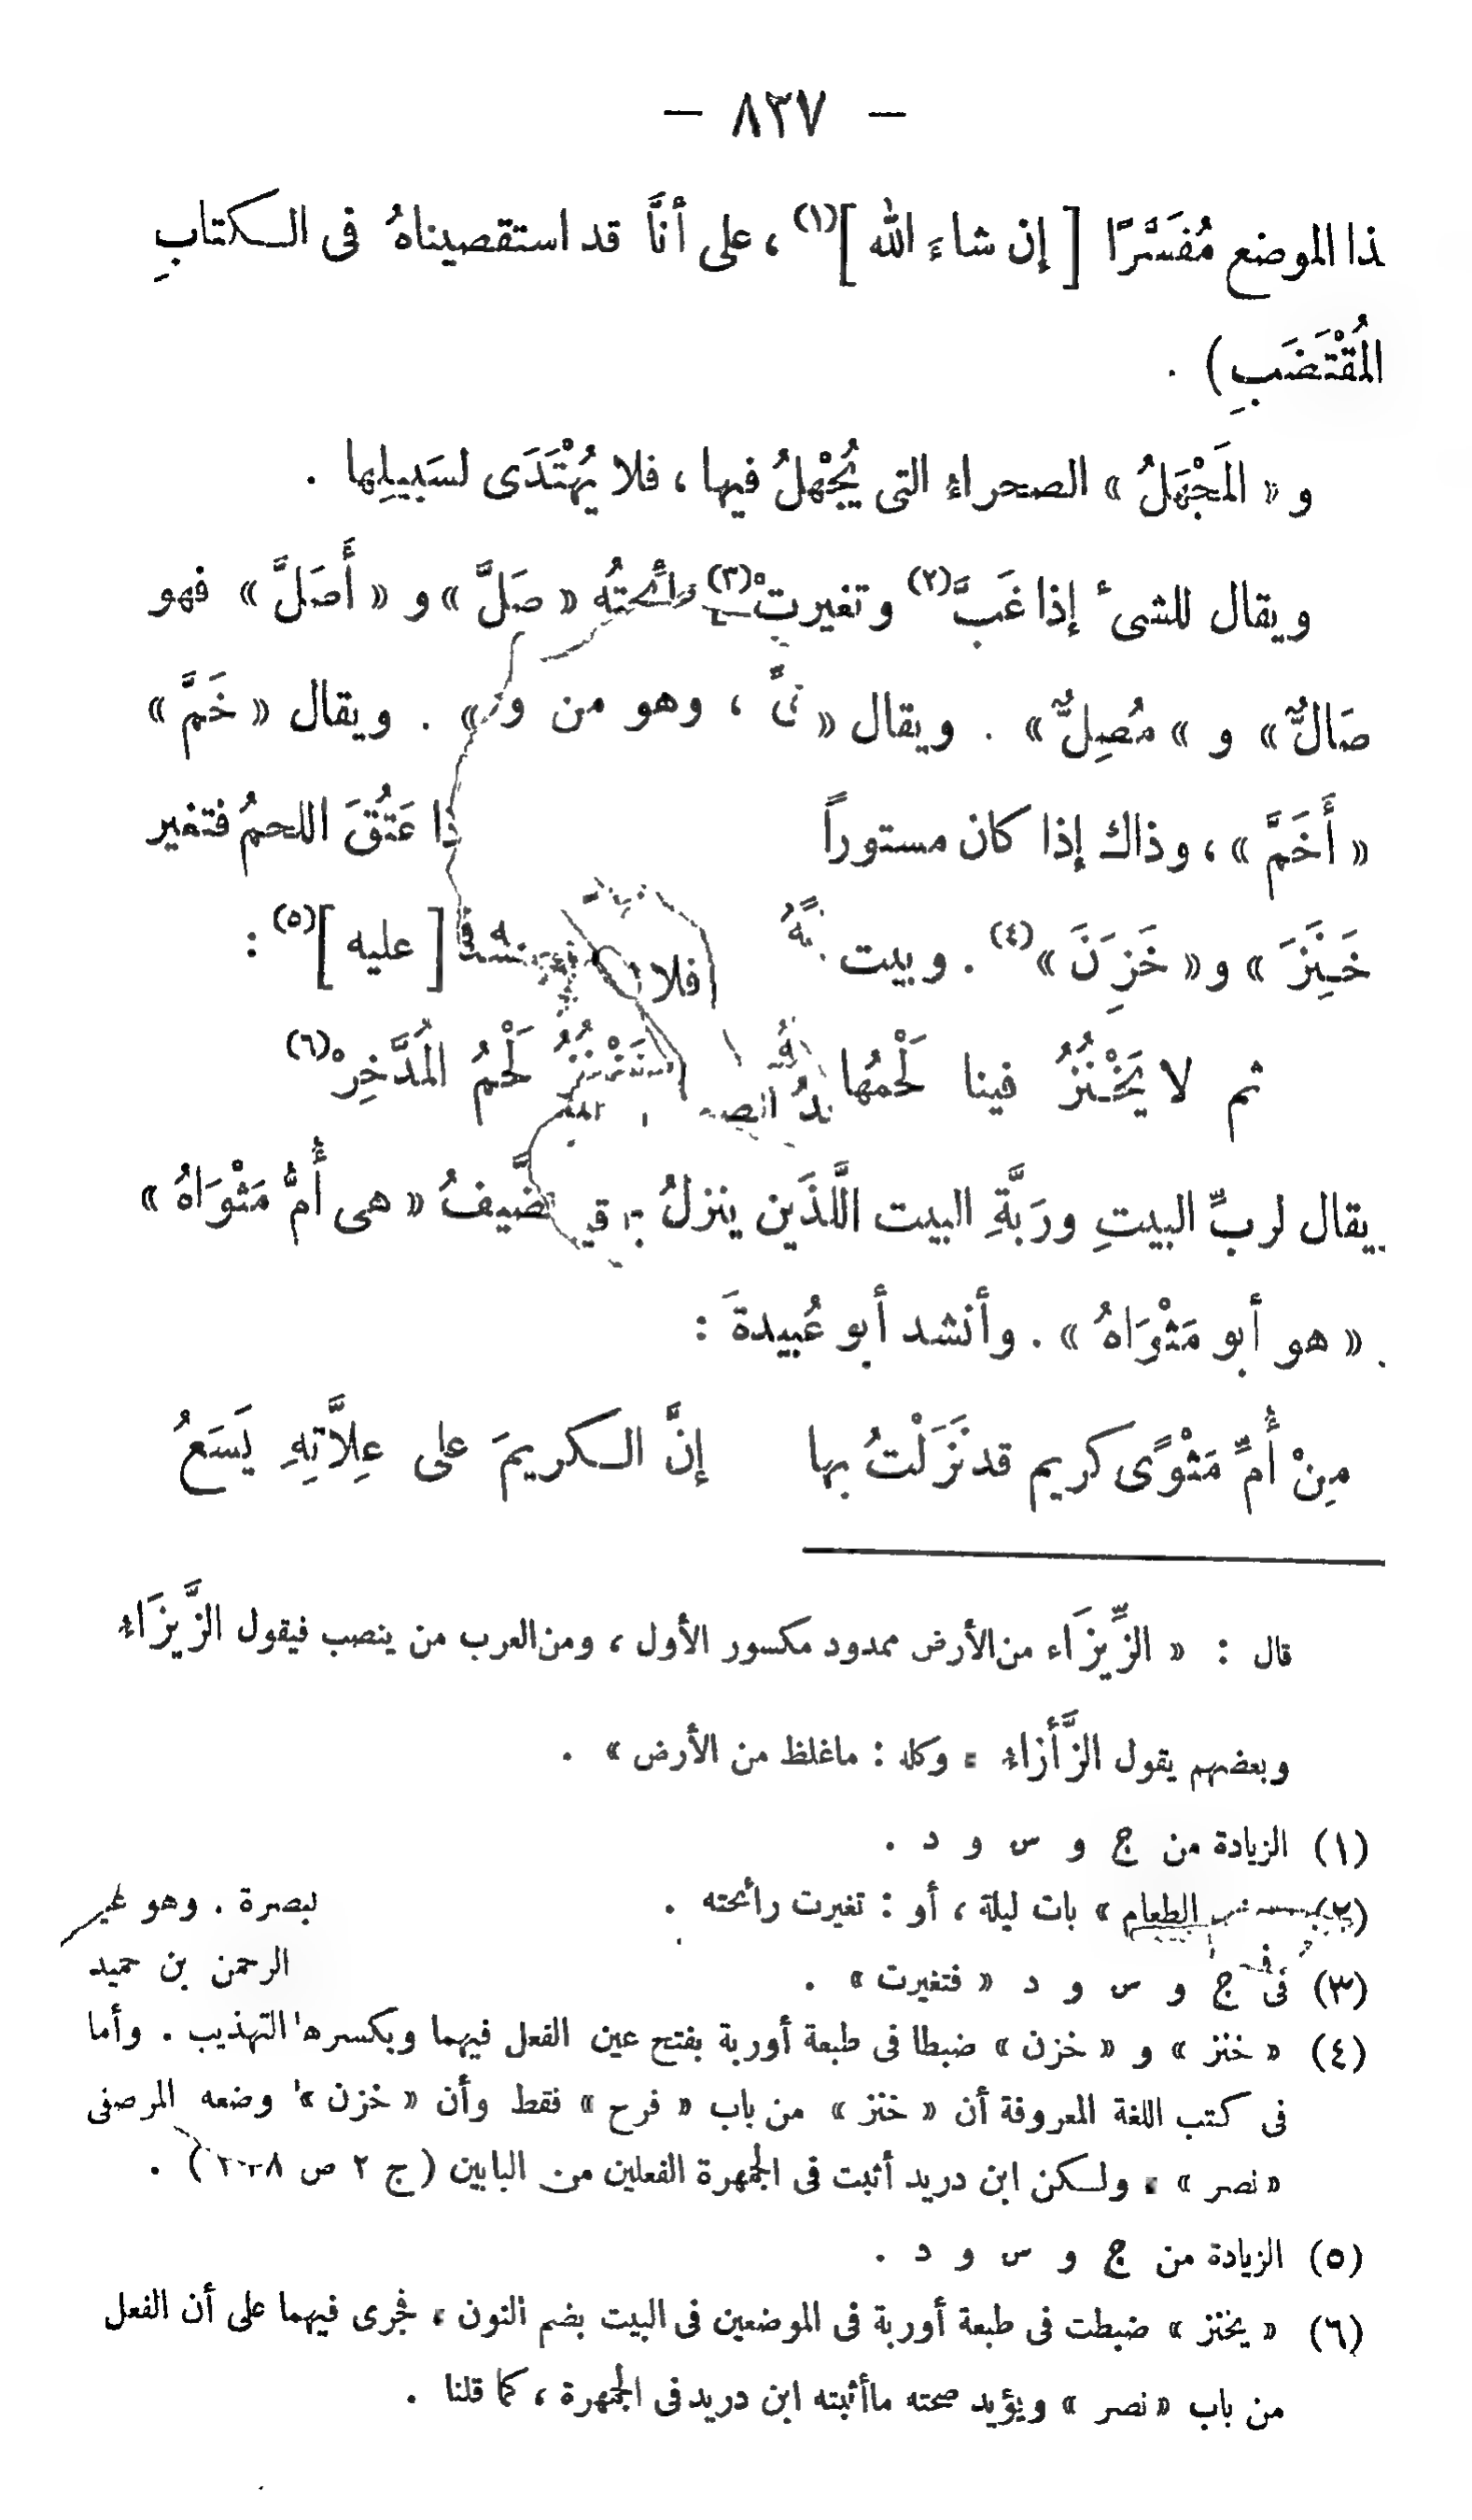 — ٨٣٧ —
ذا الموضع مُفَسَّرًا [ إن شاءَ الله ](١) ، على أنَّا قد استقصيناهُ فى الكتابِ
المُقْتَضَبِ) .
و « المَجْهَلُ » الصحراء التى يُجْهَلُ فيها ، فلا يُهْتَدَى لسَبِيلِها .
ويقال للشىء إذا غَبَّ(٢) وتغيرتْ(٣) رائحتُه « صَلَّ » و « أَصَلَّ » فهو
صَالٌّ » و « مُصِلٌّ » . ويقال « ، وهو من » . ويقال « خَمَّ »
« أَخَمَّ » ، وذاك إذا كان مستوراً عَتُقَ اللحمُ فتغير
خَنِزَ » و « خَزِنَ »(٤) . وبيت [ عليه ](٥) :
ثم لا يَخْنُزُ فينا لَحْمُها لَحْمُ المُدَّخِرْ(٦)
يقال لربِّ البيتِ ورَبَّةِ البيت اللَّذَين ينزلُ الضَّيفُ « هى أُمُّ مَثْوَاهُ »
. « هو أبو مَثْوَاهُ » . وأنشد أبو عُبيدةَ :
مِنْ أُمِّ مَثْوًى كريم قد نَزَلْتُ بها إنَّ الكريمَ على عِلَّاتِهِ يَسَعُ
قال : « الزِّيزَاء من الأرض ممدود مكسور الأول ، ومن العرب من ينصب فيقول الزَّيزَاء
وبعضهم يقول الزَّأزاء . وكله : ماغلظ من الأرض » .
(١) الزيادة من ج و س و د .
(٢) الطعام » بات ليلة ، أو : تغيرت رائحته . لبصرة . وهو غير
الرحمن بن حميد
(٣) فى ج و س و د « فتغيرت » .
(٤) « خنز » و « خزن » ضبطا فى طبعة أوربة بفتح عين الفعل فيهما وبكسرها التهذيب . وأما
فى كتب اللغة المعروفة أن « خنز » من باب « فرح » فقط وأن « خزن » وضعه المرصفى
« نصر » . ولكن ابن دريد أثبت فى الجمهرة الفعلين من البابين (ج ٢ ص ) .
(٥) الزيادة من ج و س و د .
(٦) « يخنز » ضبطت فى طبعة أوربة فى الموضعين فى البيت بضم النون ، فجرى فيهما على أن الفعل
من باب « نصر » ويؤيد صحته ماأثبته ابن دريد فى الجمهرة ، كما قلنا .